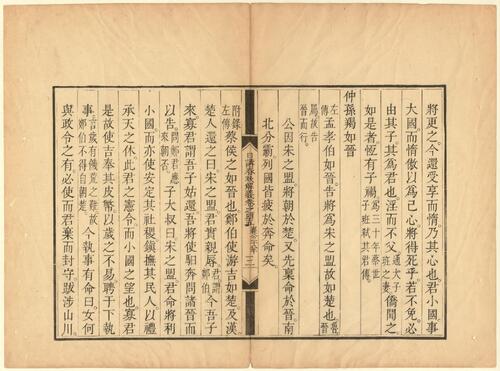 將更之今還受享而惰乃其心也君小國事
大國而惰傲以爲己心將得死乎若不免必
由其子其爲君也淫而不父通大子班之妻僑聞之
如是者恆有子禍爲三十年蔡世子班弒其君傳
仲孫羯如晉
左傳孟孝伯如晉告將爲宋之盟故如楚也魯晉
屬故告晉而行
公因宋之盟將朝於楚又先稟命於晉南
北分霸列國皆疲於奔命矣
日講春秋解義 三
附錄左傳蔡侯之如晉也鄭伯使游吉如楚及漢
楚人還之曰宋之盟君實親辱君謂鄭伯今吾子
來寡君謂吾子姑還吾將使馹奔問諸晉而
以告問鄭君應來朝否子大叔曰宋之盟君命將利
小國而亦使安定其社稷鎮撫其民人以禮
承天之休此君之憲令而小國之望也寡君
是故使吉奉其皮幣以歲之不易聘於下執
事言歲有饑荒之難故鄭伯不得自朝楚今執事有命曰女何
與政令之有必使而君棄而封守跋涉山川